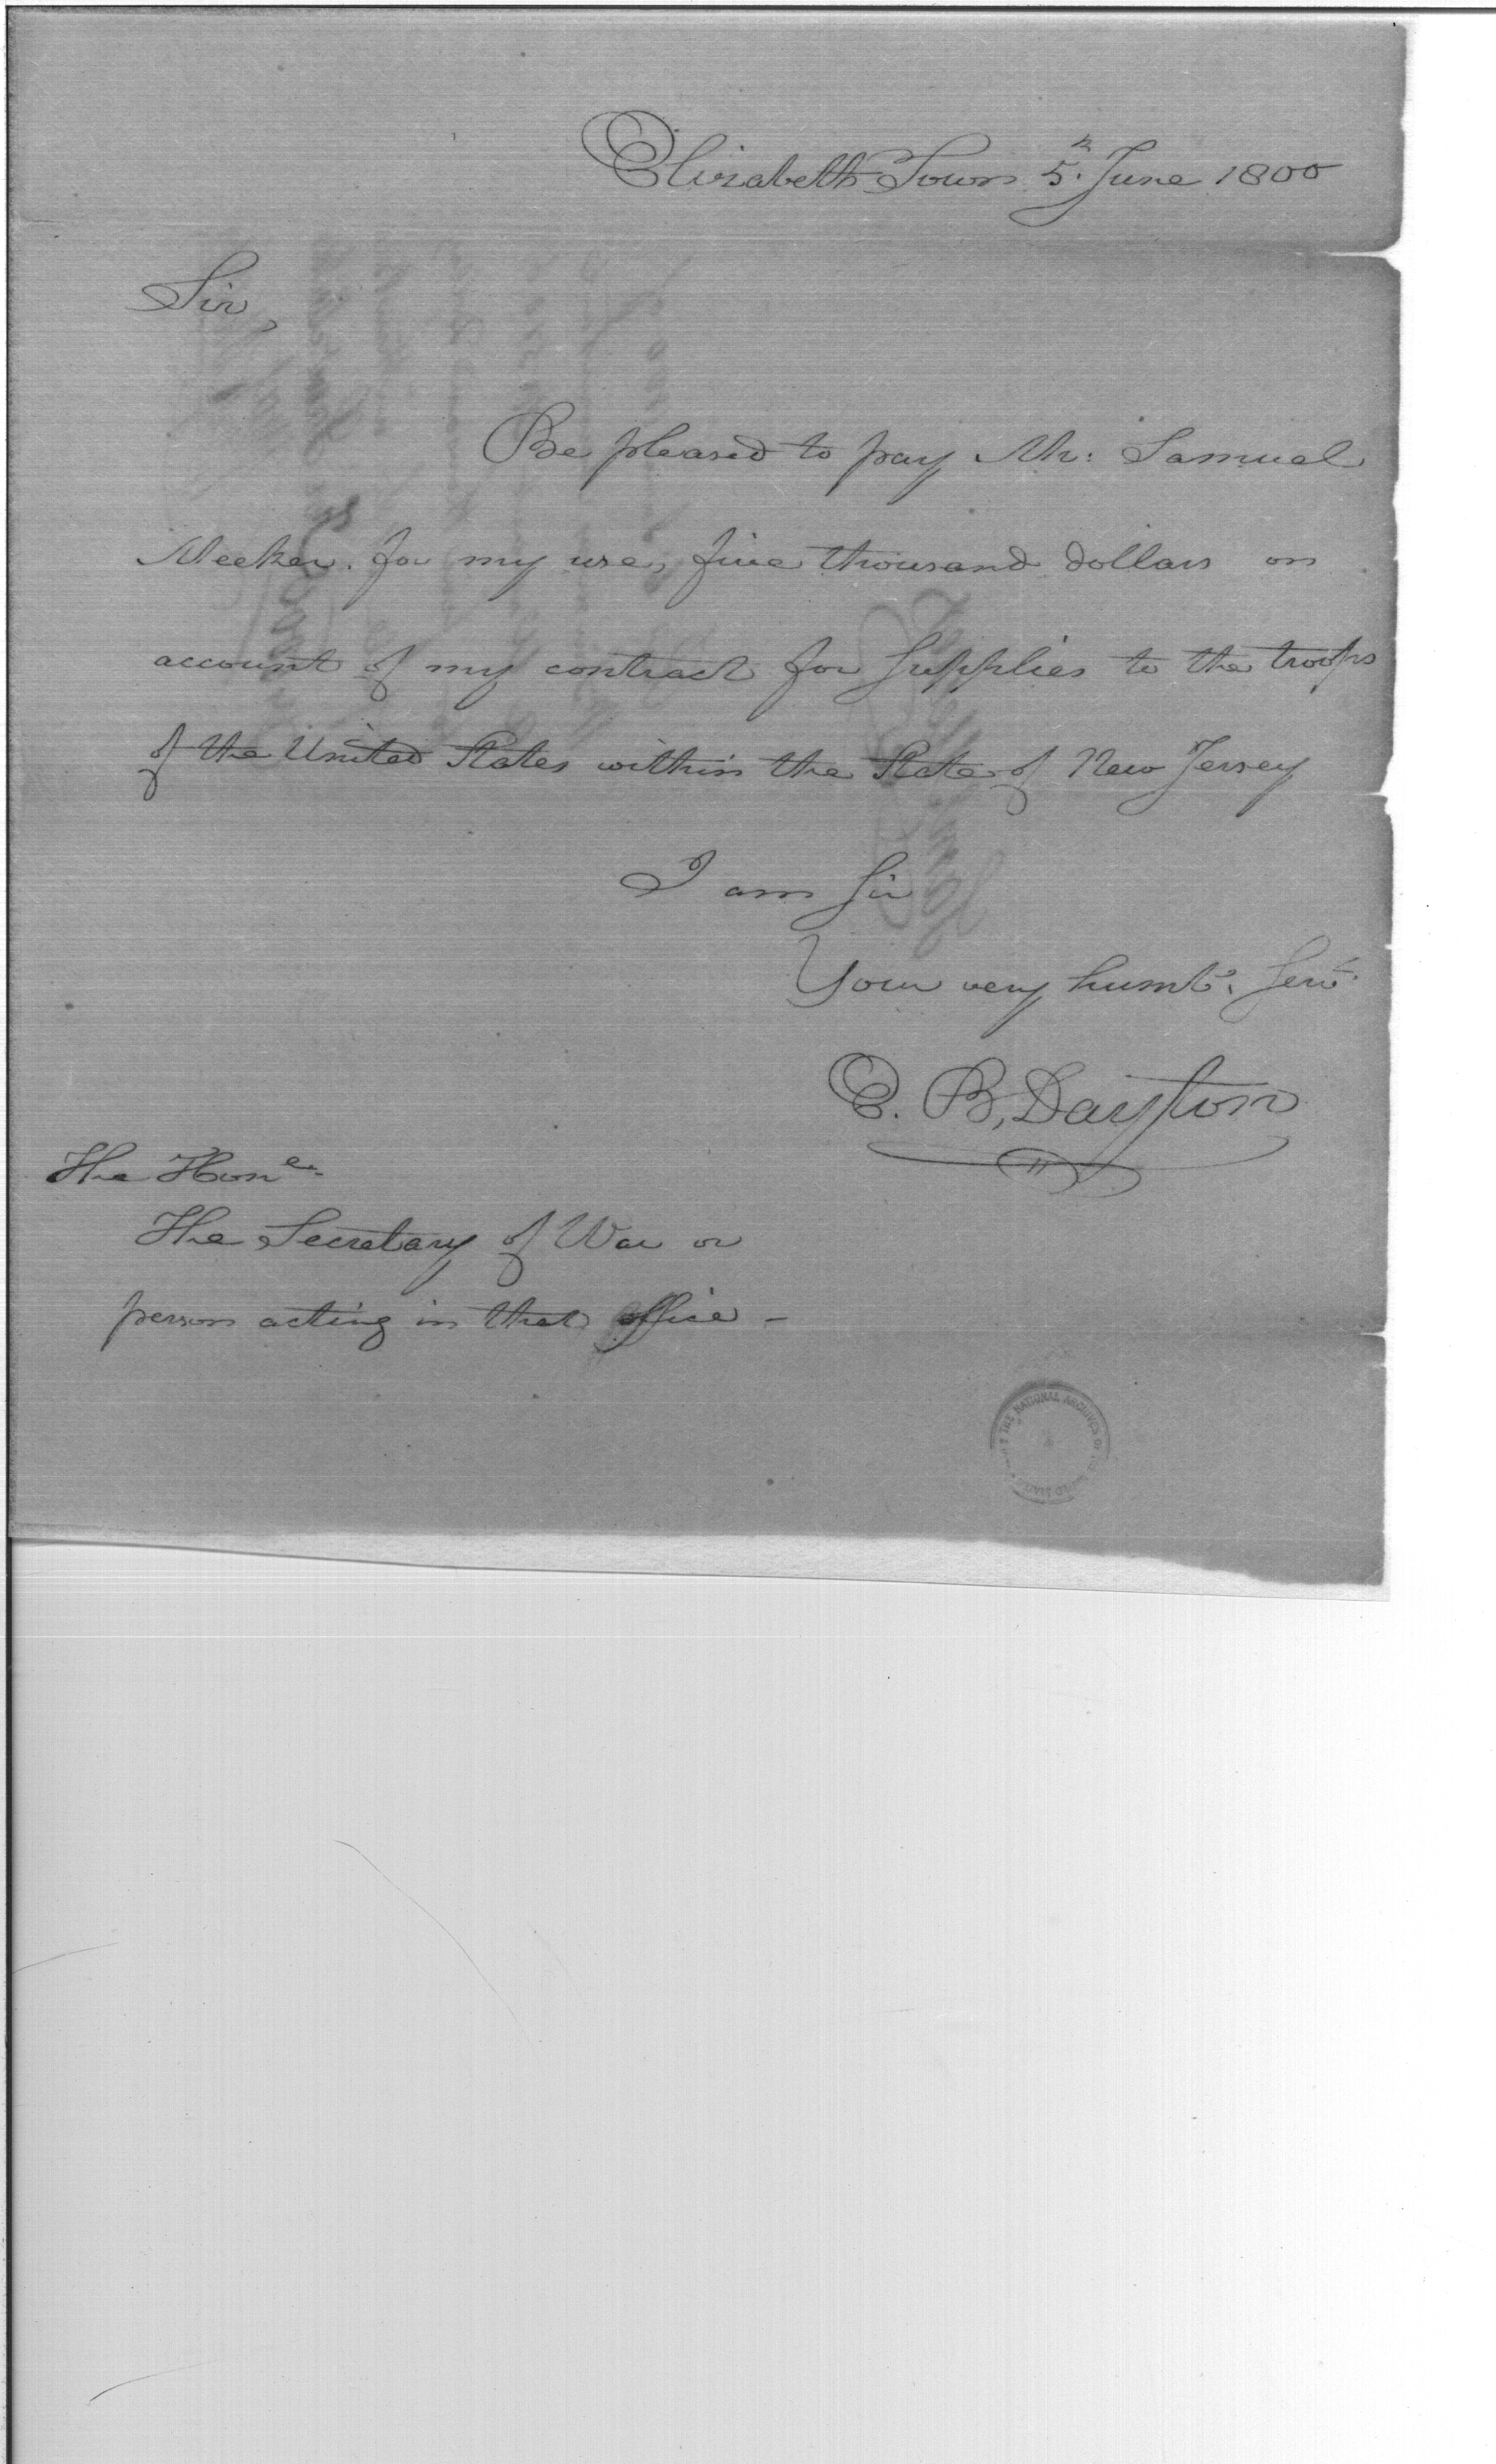 Elizabeth Town 5th June 1800
Sir,
Be pleased to pay Mr: Samuel
Meeker. for my use, five thousand dollars on
account of my contract for supplies to the troops
of the United States within the State of New Jersey
I am Sir
Your very humbe. Servt.
E. B. Dayton
The Honle.
The Secretary of War or
person acting in that office -
THE NATIONAL ARCHIVES OF